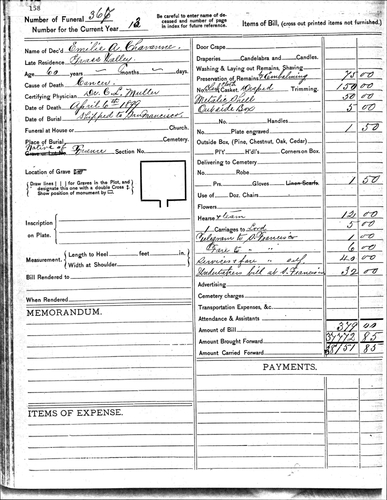 158
Number of Funeral 367
Number for the Current Year 12
Be careful to enter net deceased and number of page in index for future reference.
Items of Bill, (cross out printed items not furnished.)
Name of Dec'd Emilie A.
Late Residence Grass Valley.
Age 60 years Months Days
Cause of Death Cancer
Certifying Physician Dr. C. L. Muller
Date of Death April 6th 1899
Date of Burial Shipped to San Francisco
Funeral at House or Church.
Place of Burial Cemetery
Native of France Section No.
Location of Grave
Draw lines | | for Graves in the Plot, and designate this one with a double Cross
Show position of monument by
Inscription
on Plate.
Measurement.
Length to Heel feet inches
Width at Shoulder " "
Bill Rendered to
When Rendered
MEMORANDUM.
ITEMS OF EXPENSE.
Door Crape
Draperies Candelabra and Candles.
Washing & Laying out Remains, Shaving
Preservation of Remains & Embalming 75 00
No. Casket Draped Trimming. 150 00
Metalic Shell 50 00
Outside Box 5 00
No. Handles
Plate engraved 1 50
Outside Box, (Pine, Chestnut, Oak, Cedar)
P'l'y H'd'l's Corners on Box.
Delivering to Cemetery
No. Robe
Prs. Gloves Linen Scarfs. 1 50
Use of Doz. Chairs
Flowers
Hearse & team 12 00
1 Carriages to 5 00
Telegram to S. Francisco 1 00
Fare to " " 6 00
Services & fare " self 40 00
Undertakers bill at S. Francisco 32 00
Advertising
Cemetery charges
Transportation Expenses, &c.
Attendance & Assistants
Amount of Bill 379 00
Amount Brought Forward 37772 85
Amount Carried Forward 38151 85
PAYMENTS.